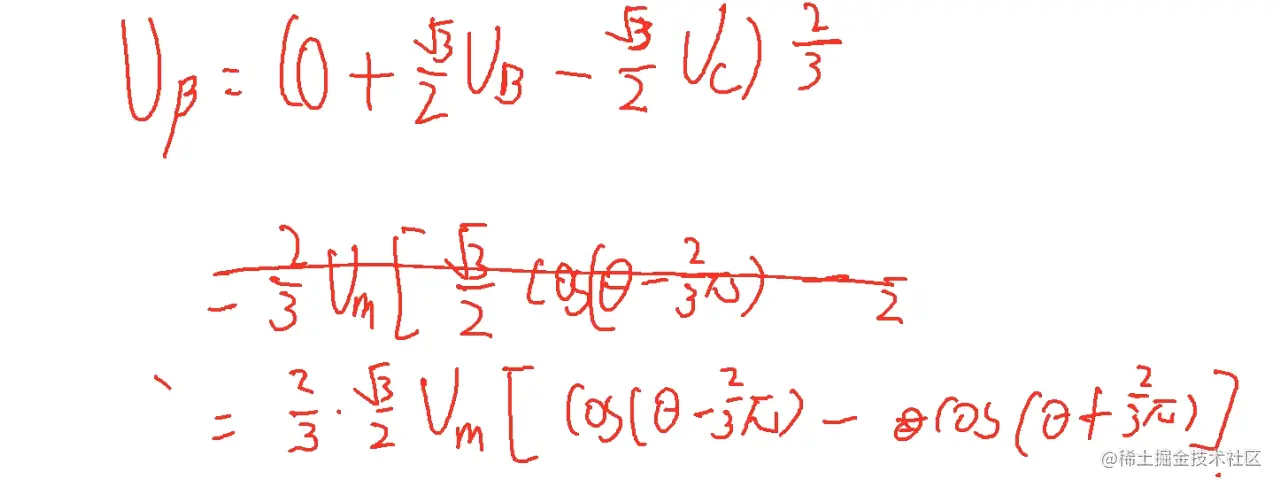 U_β = (0 + √3/2 U_B - √3/2 U_C) 2/3
= 2/3 U_m [ √3/2 cos(θ - 2/3π) - 2
= 2/3 · √3/2 U_m [ cos(θ - 2/3π) - cos(θ + 2/3π) ]
@稀土掘金技术社区